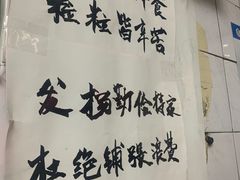 粒粒皆辛苦
发扬勤俭持家
杜绝铺张浪费